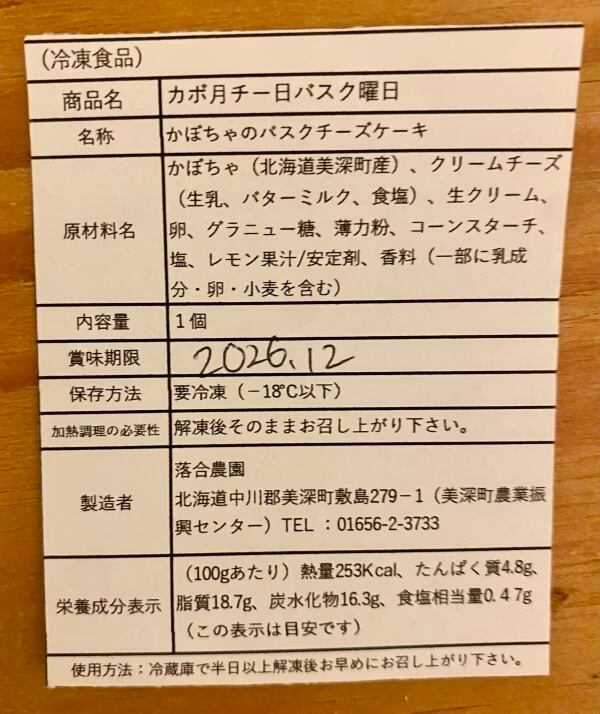 （冷凍食品）
商品名 カボ月チー日バスク曜日
名称 かぼちゃのバスクチーズケーキ
原材料名
かぼちゃ（北海道美深町産）、クリームチーズ
（生乳、バターミルク、食塩）、生クリーム、
卵、グラニュー糖、薄力粉、コーンスターチ、
塩、レモン果汁/安定剤、香料（一部に乳成
分・卵・小麦を含む）
内容量 1個
賞味期限 2026.12
保存方法 要冷凍（－18℃以下）
加熱調理の必要性 解凍後そのままお召し上がり下さい。
製造者
落合農園
北海道中川郡美深町敷島279－1（美深町農業振
興センター）TEL：01656-2-3733
栄養成分表示
（100gあたり）熱量253Kcal、たんぱく質4.8g、
脂質18.7g、炭水化物16.3g、食塩相当量0.47g
（この表示は目安です）
使用方法：冷蔵庫で半日以上解凍後お早めにお召し上がり下さい。